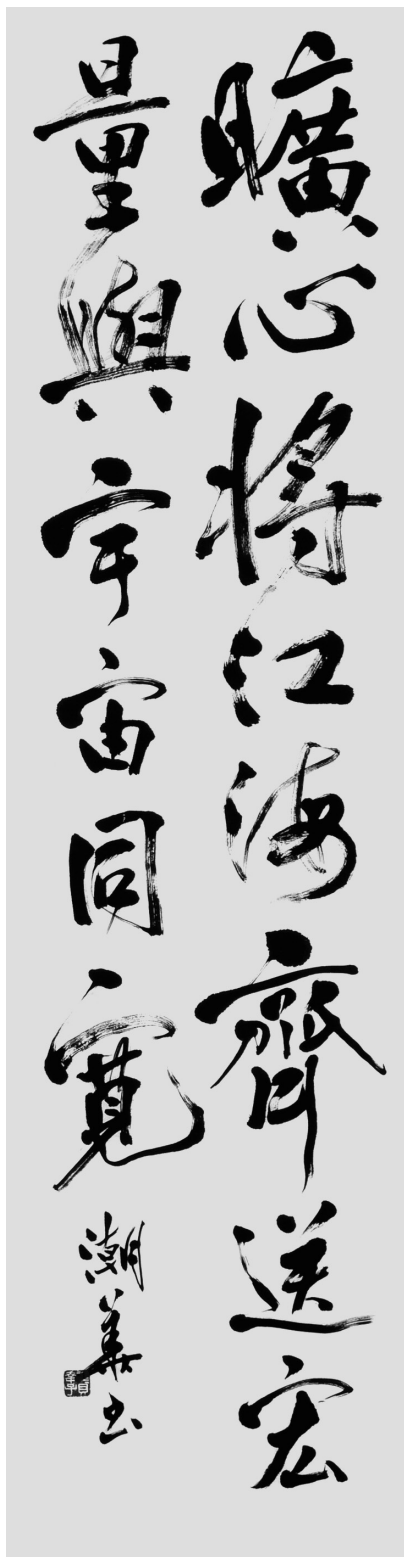 曠心將江海齊送宏
量與宇宙同寬
潮華書